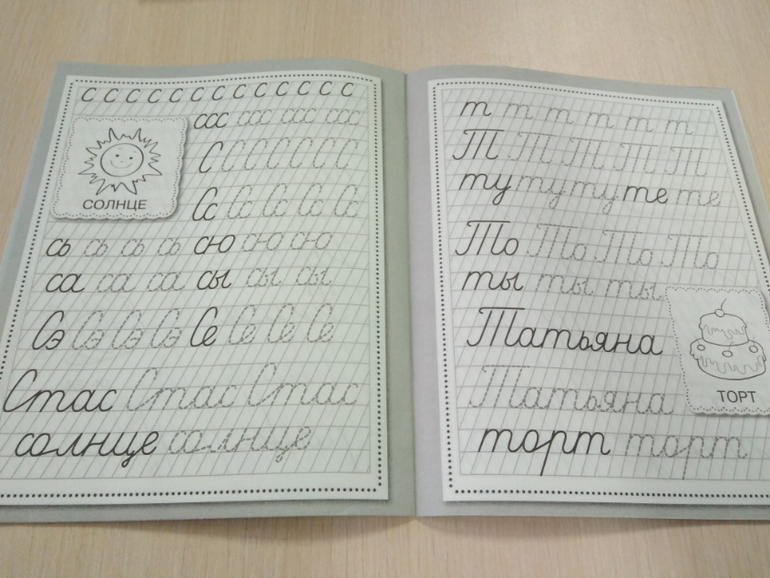 с с с с с с с с с с с с с
ссс ссс ссс ссс
С С С С С С С
Сс Сс Сс Сс Сс
СОЛНЦЕ
сь сь сь сь сю сю сю
са са са сы сы сы
Сэ Сэ Сэ Сэ Се Се Се Се
Стас Стас Стас
солнце солнце
т т т т т т
Т Т Т Т Т
ту ту ту те те
То То То То
ты ты ты
Татьяна
Татьяна
ТОРТ
торт торт